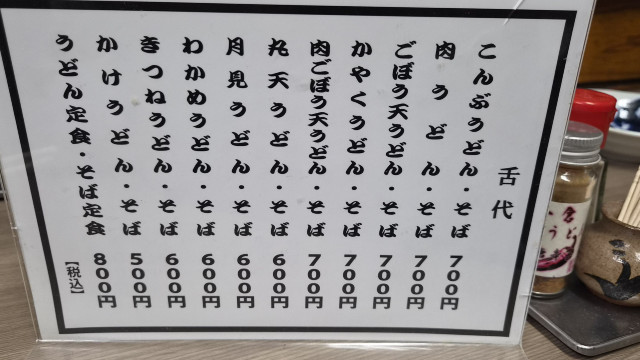 舌代
こんぶうどん・そば 700円
肉うどん・そば 700円
ごぼう天うどん・そば 700円
かやくうどん・そば 700円
肉ごぼう天うどん・そば 700円
丸天うどん・そば 600円
月見うどん・そば 600円
わかめうどん・そば 600円
きつねうどん・そば 600円
かけうどん・そば 500円
うどん定食・そば定食 800円
【税込】